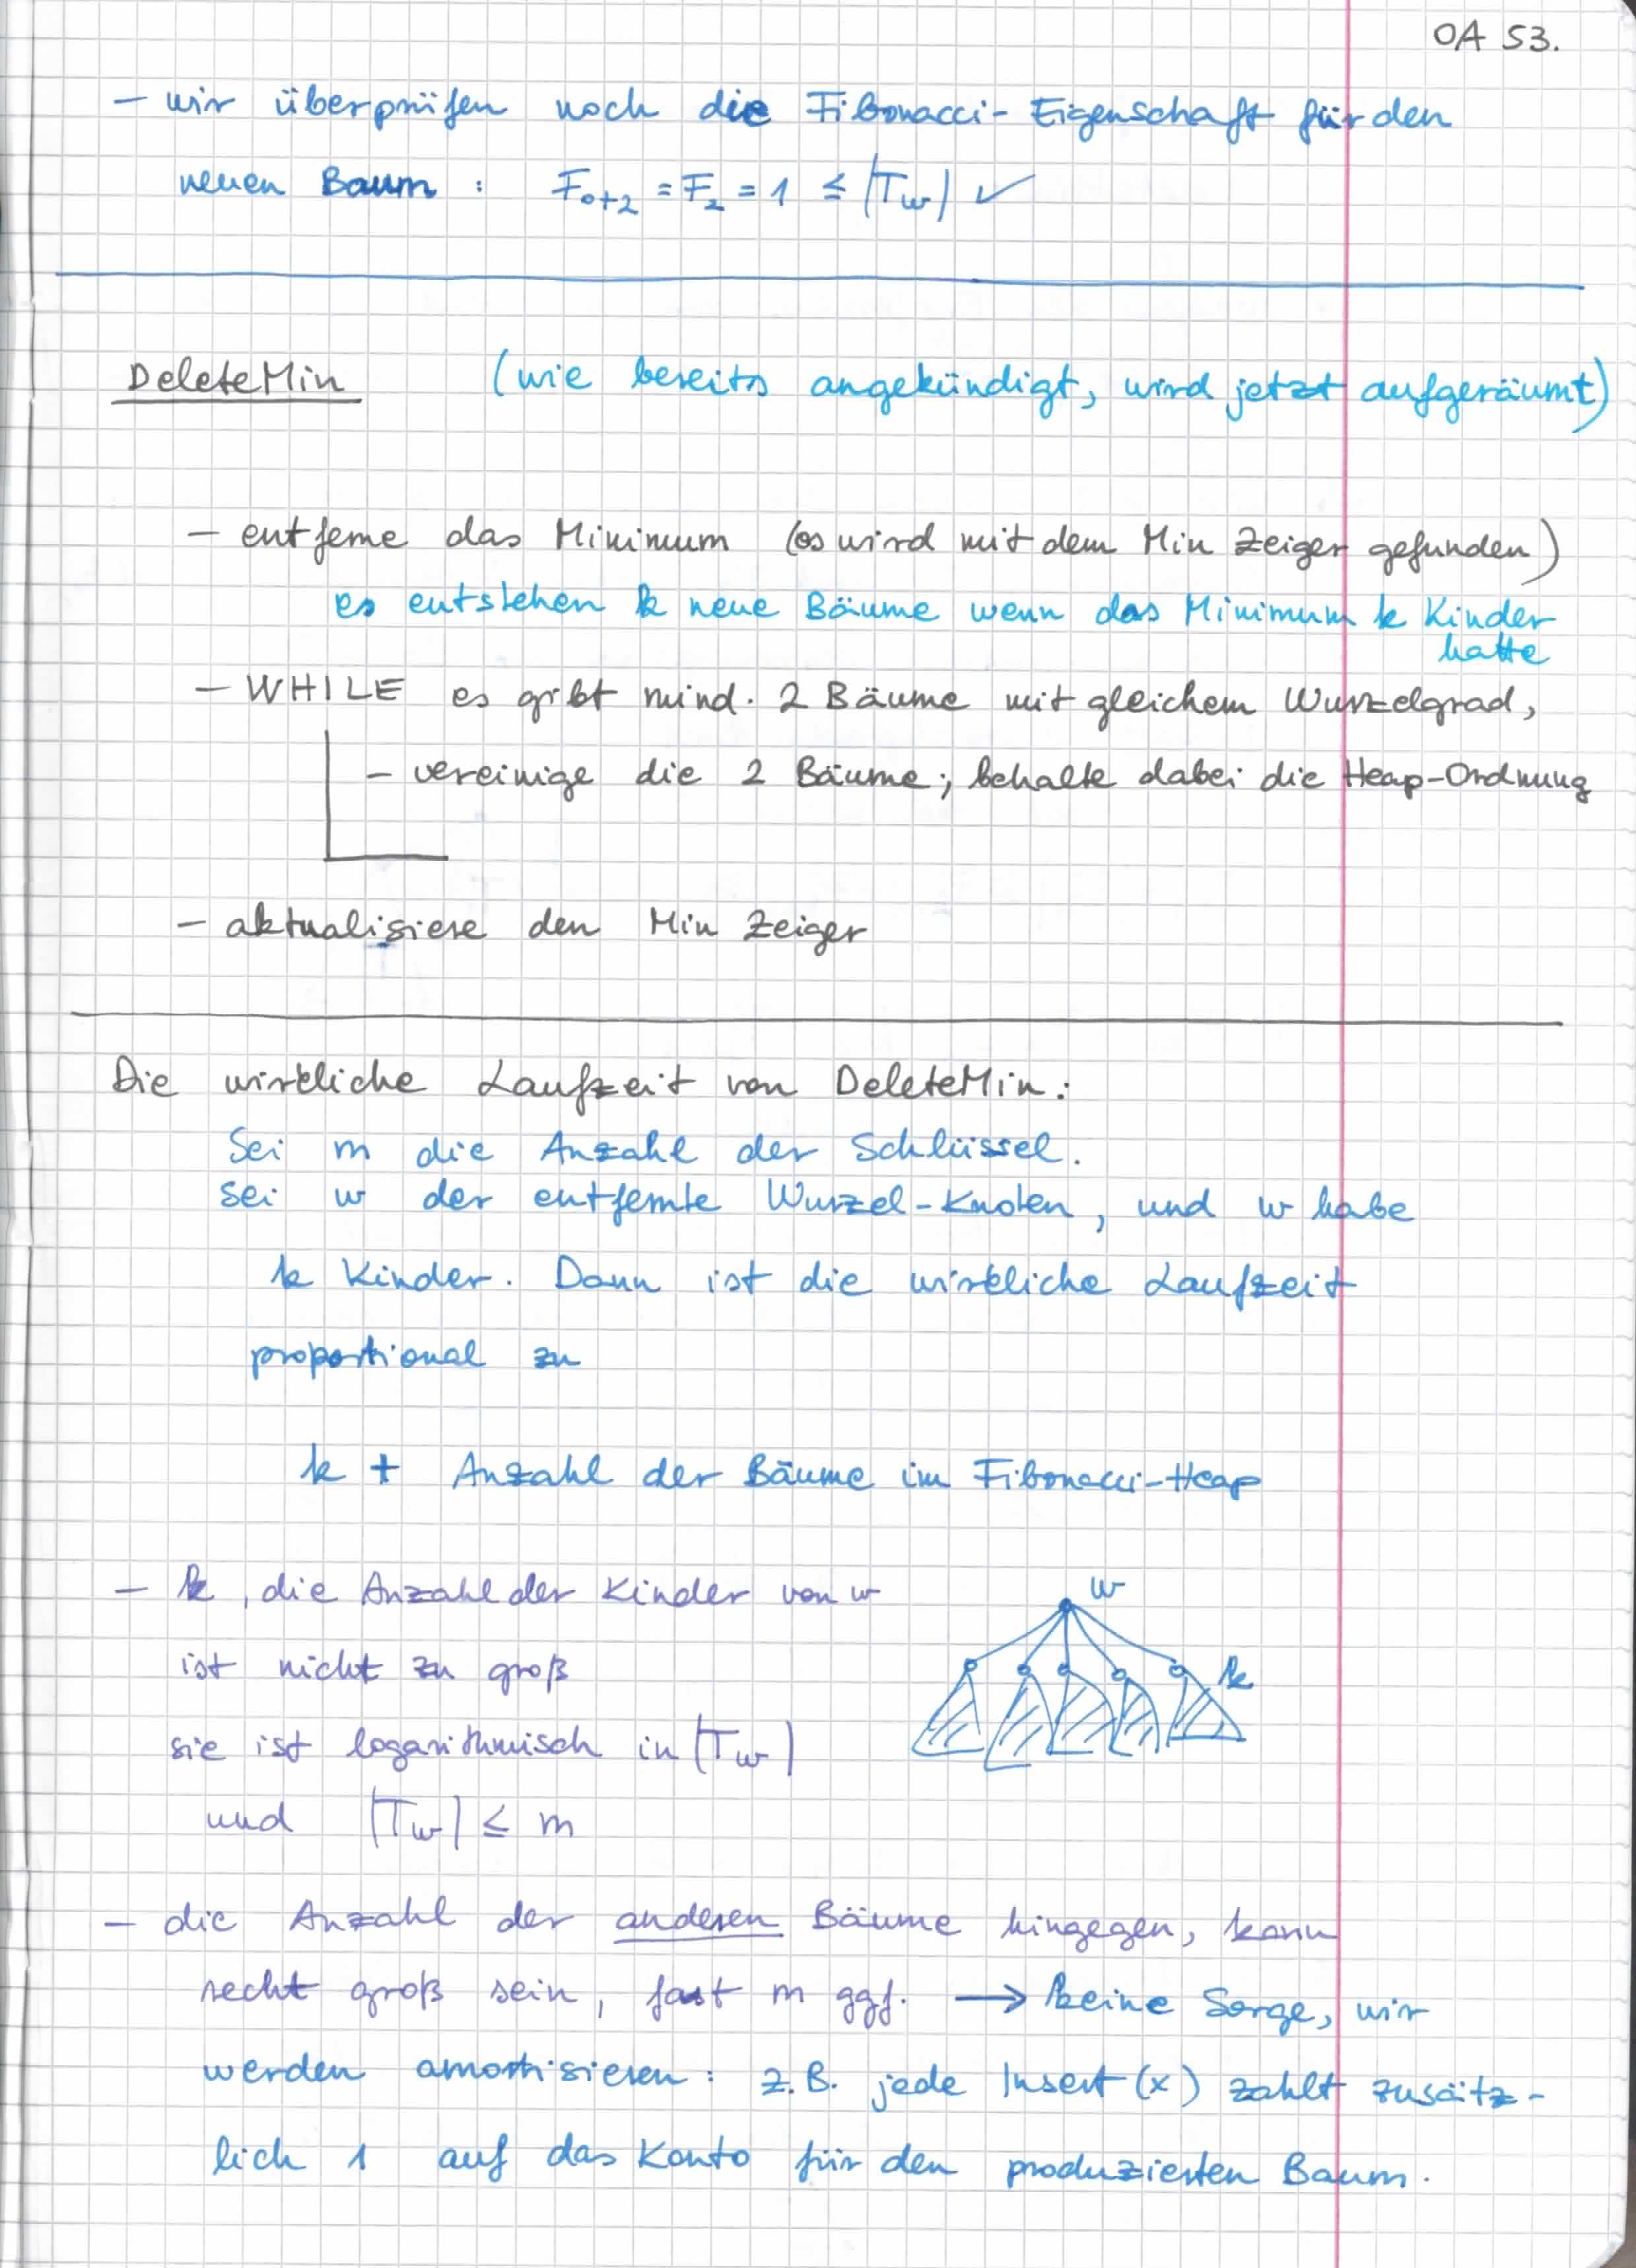 OA 53.
– wir überprüfen noch die Fibonacci-Eigenschaft für den
neuen Baum : F₀₊₂ = F₂ = 1 ≤ |T_w| ✓
DeleteMin (wie bereits angekündigt, wird jetzt aufgeräumt)
– entferne das Minimum (es wird mit dem Min Zeiger gefunden)
es entstehen k neue Bäume wenn das Minimum k Kinder
hatte
– WHILE es gibt mind. 2 Bäume mit gleichem Wurzelgrad,
– vereinige die 2 Bäume; behalte dabei die Heap-Ordnung
– aktualisiere den Min Zeiger
Die wirkliche Laufzeit von DeleteMin:
Sei m die Anzahl der Schlüssel.
Sei w der entfernte Wurzel-Knoten, und w habe
k Kinder. Dann ist die wirkliche Laufzeit
proportional zu
k + Anzahl der Bäume im Fibonacci-Heap
– k, die Anzahl der Kinder von w
ist nicht zu groß
sie ist logarithmisch in |T_w|
und |T_w| ≤ m
w
k
– die Anzahl der anderen Bäume hingegen, kann
recht groß sein, fast m ggf. → keine Sorge, wir
werden amortisieren: z.B. jede Insert(x) zahlt zusätz-
lich 1 auf das Konto für den produzierten Baum.